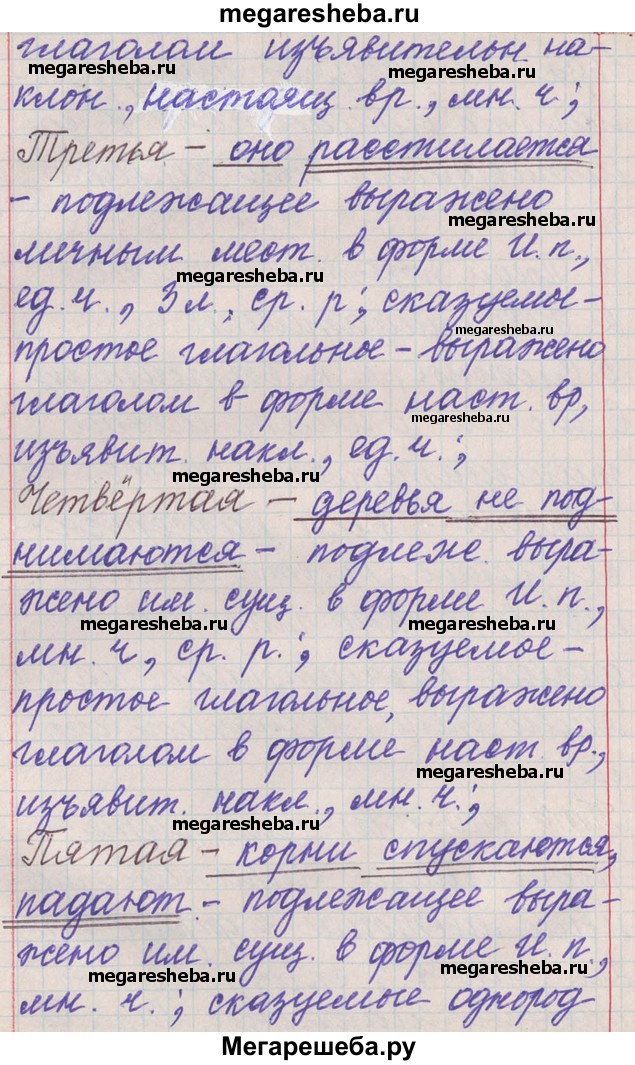 megaresheba.ru
глаголом изъявительн на-
megaresheba.ru
megaresheba.ru
клон., настоящ. вр., мн. ч.;
Третья – оно расстилается
- подлежащее выражено
megaresheba.ru
личным мест. в форме И.п.,
megaresheba.ru
ед.ч., 3 л., ср. р.; сказуемо-
megaresheba.ru
простое глагольное – выражено
глаголом в форме наст. вр,
megaresheba.ru
изъявит. накл., ед.ч.;
megaresheba.ru
Четвёртая – деревья не под-
нимаются – подлеж. выра-
жено им. сущ. в форме И.п.,
megaresheba.ru
megaresheba.ru
мн. ч., ср. р.; сказуемое –
простое глагольное, выражено
глаголом в форме наст. вр.,
megaresheba.ru
изъявит. накл., мн. ч.;
megaresheba.ru
Пятая – корни спускаются,
падают – подлежащее выра-
жено им. сущ. в форме И.п.,
megaresheba.ru
megaresheba.ru
мн. ч.; сказуемые однород
Мегарешеба.ру